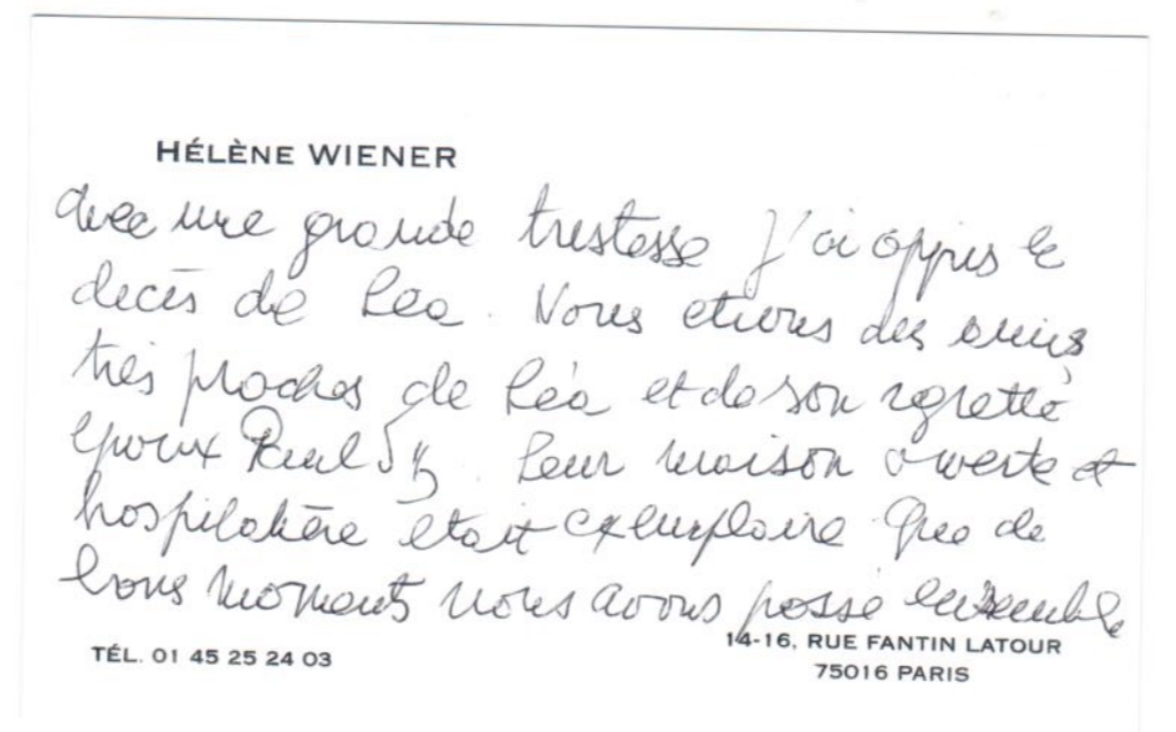 HÉLÈNE WIENER
Avec une grande tristesse j'ai appris le
decès de Léa. Nous etions des amis
très proches de Léa et de son regretté
époux Paul. Leur maison ouverte et
hospitalière etait exemplaire. Que de
bons moments nous avons passé ensemble
TÉL. 01 45 25 24 03
14-16, RUE FANTIN LATOUR
75016 PARIS